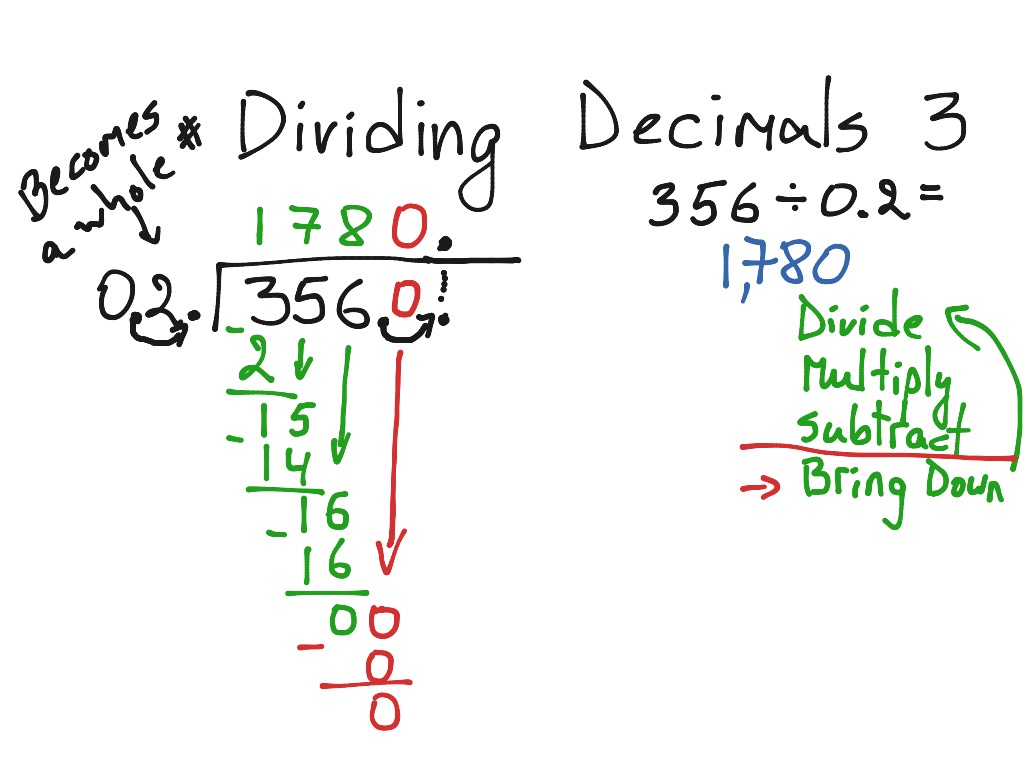 Dividing Decimals 3
Becomes
a whole #
356÷0.2=
1,780
1780.
02.
3560.
- 2
15
- 14
16
- 16
00
- 0
0
Divide
Multiply
Subtract
→ Bring Down